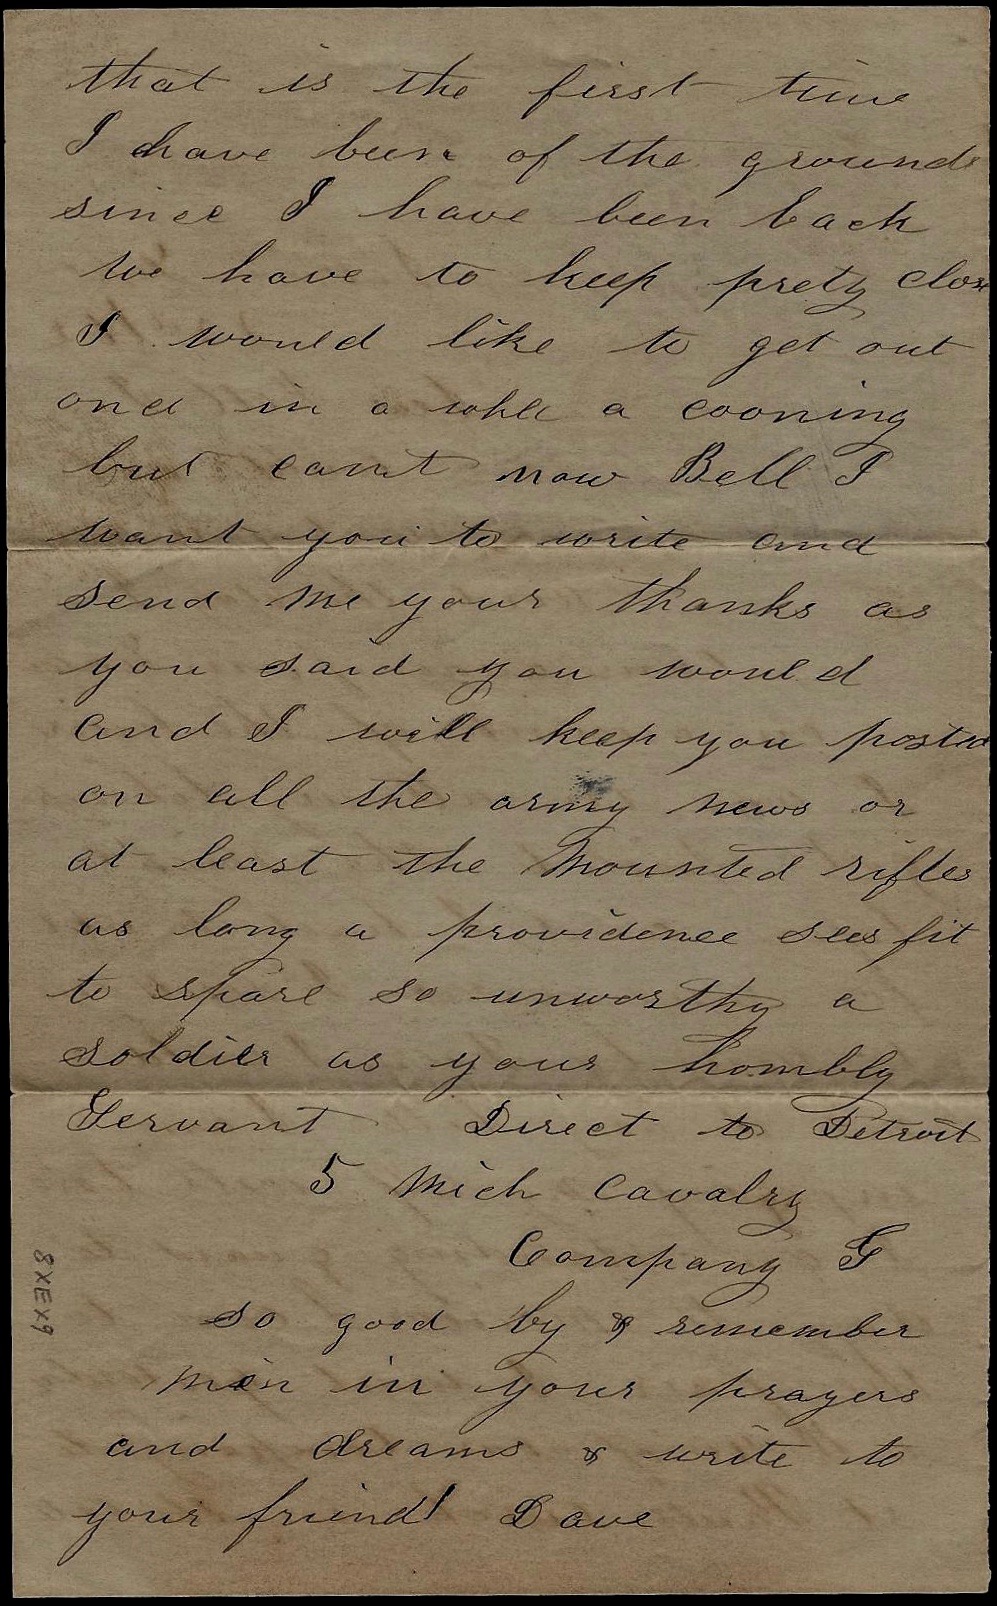 that is the first time
I have been of the grounds
since I have been back
we have to keep prety close
I would like to get out
once in a while a cooning
but cant now Bell I
want you to write and
send me your thanks as
you said you would
and I will keep you posted
on all the army news or
at least the Mounted rifles
as long a providence sees fit
to spare so unworthy a
soldier as your hombly
Servant Direct to Detroit
5 Mich Cavalry
Company G
so good by & remember
in your prayers
and dreams & write to
your friend! Dave
8XEX9